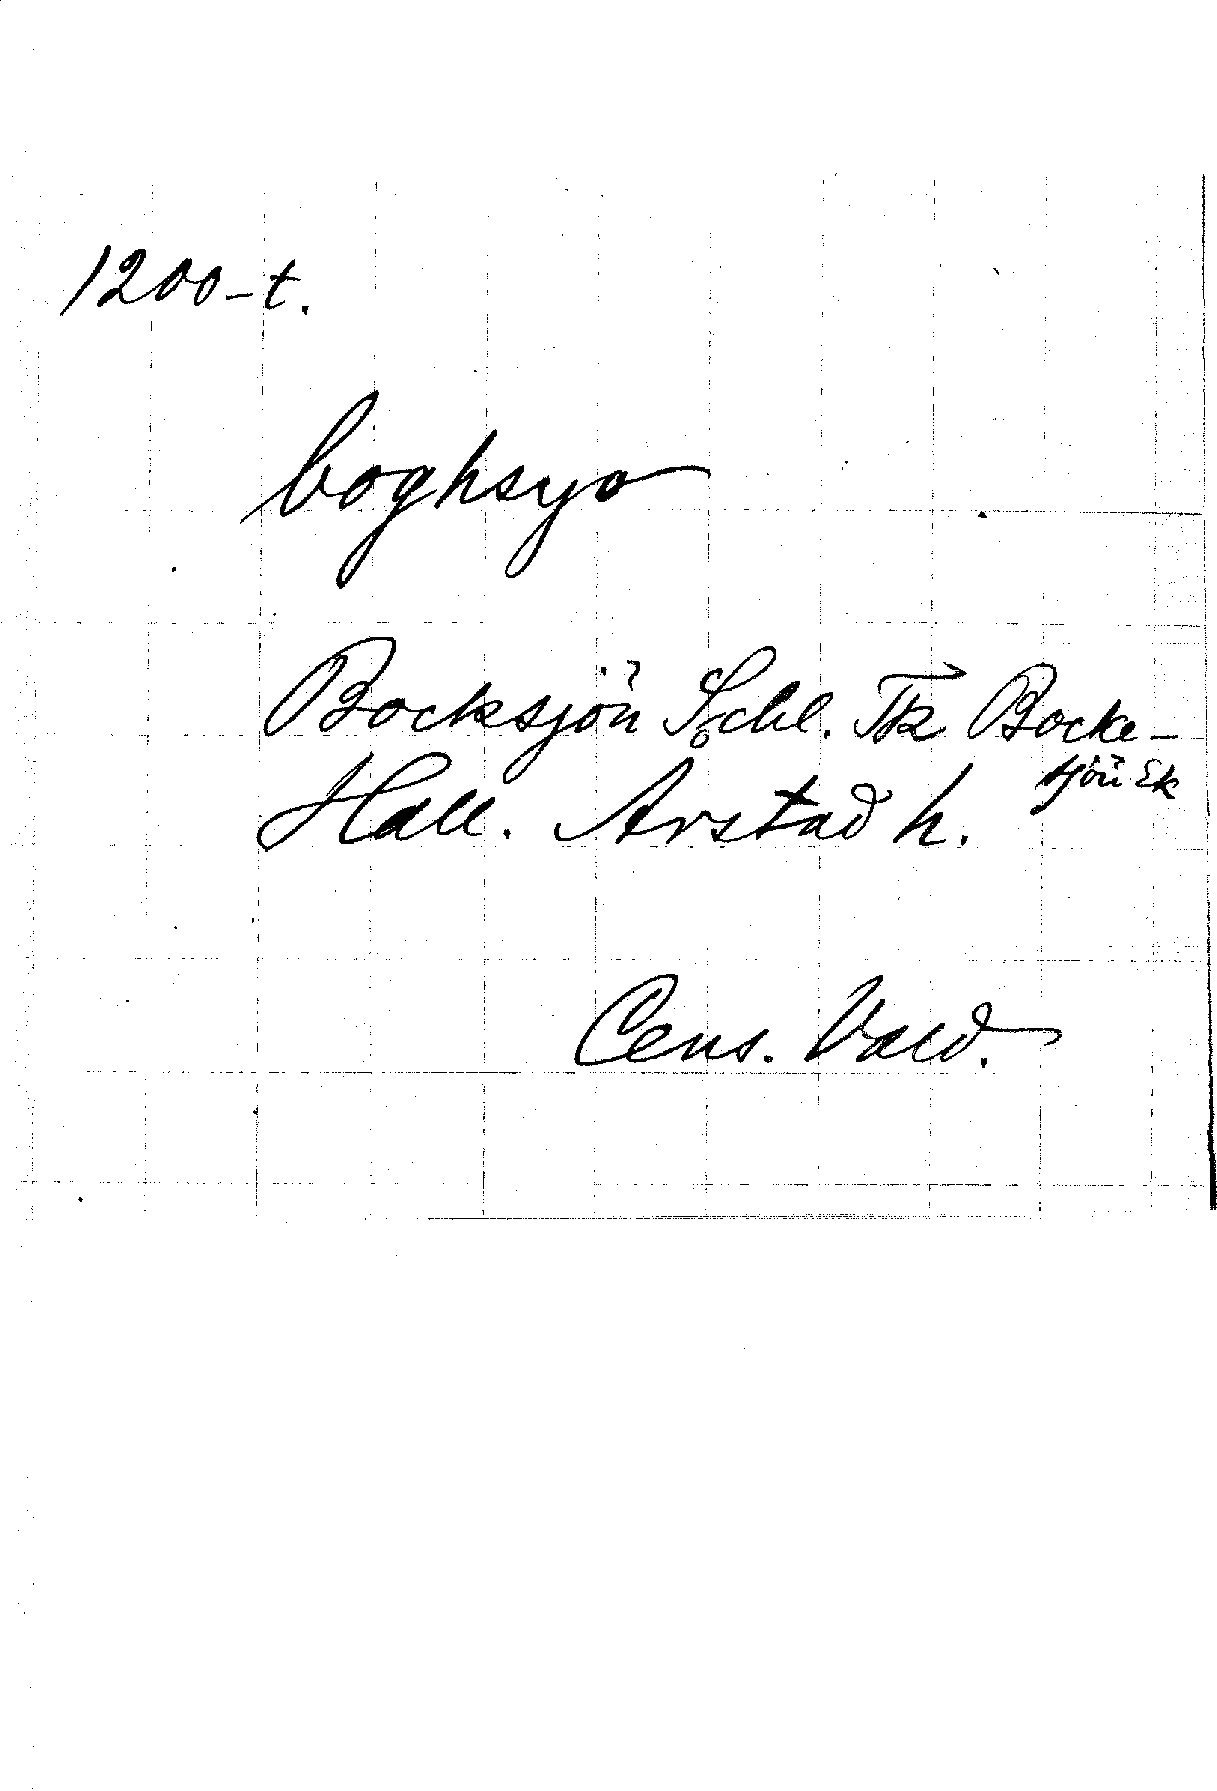 1200-t.
boghsyo
Bocksjön Schl. TK Bocke-
sjön Ek
Hall. Arstad h.
Cens. Vald.